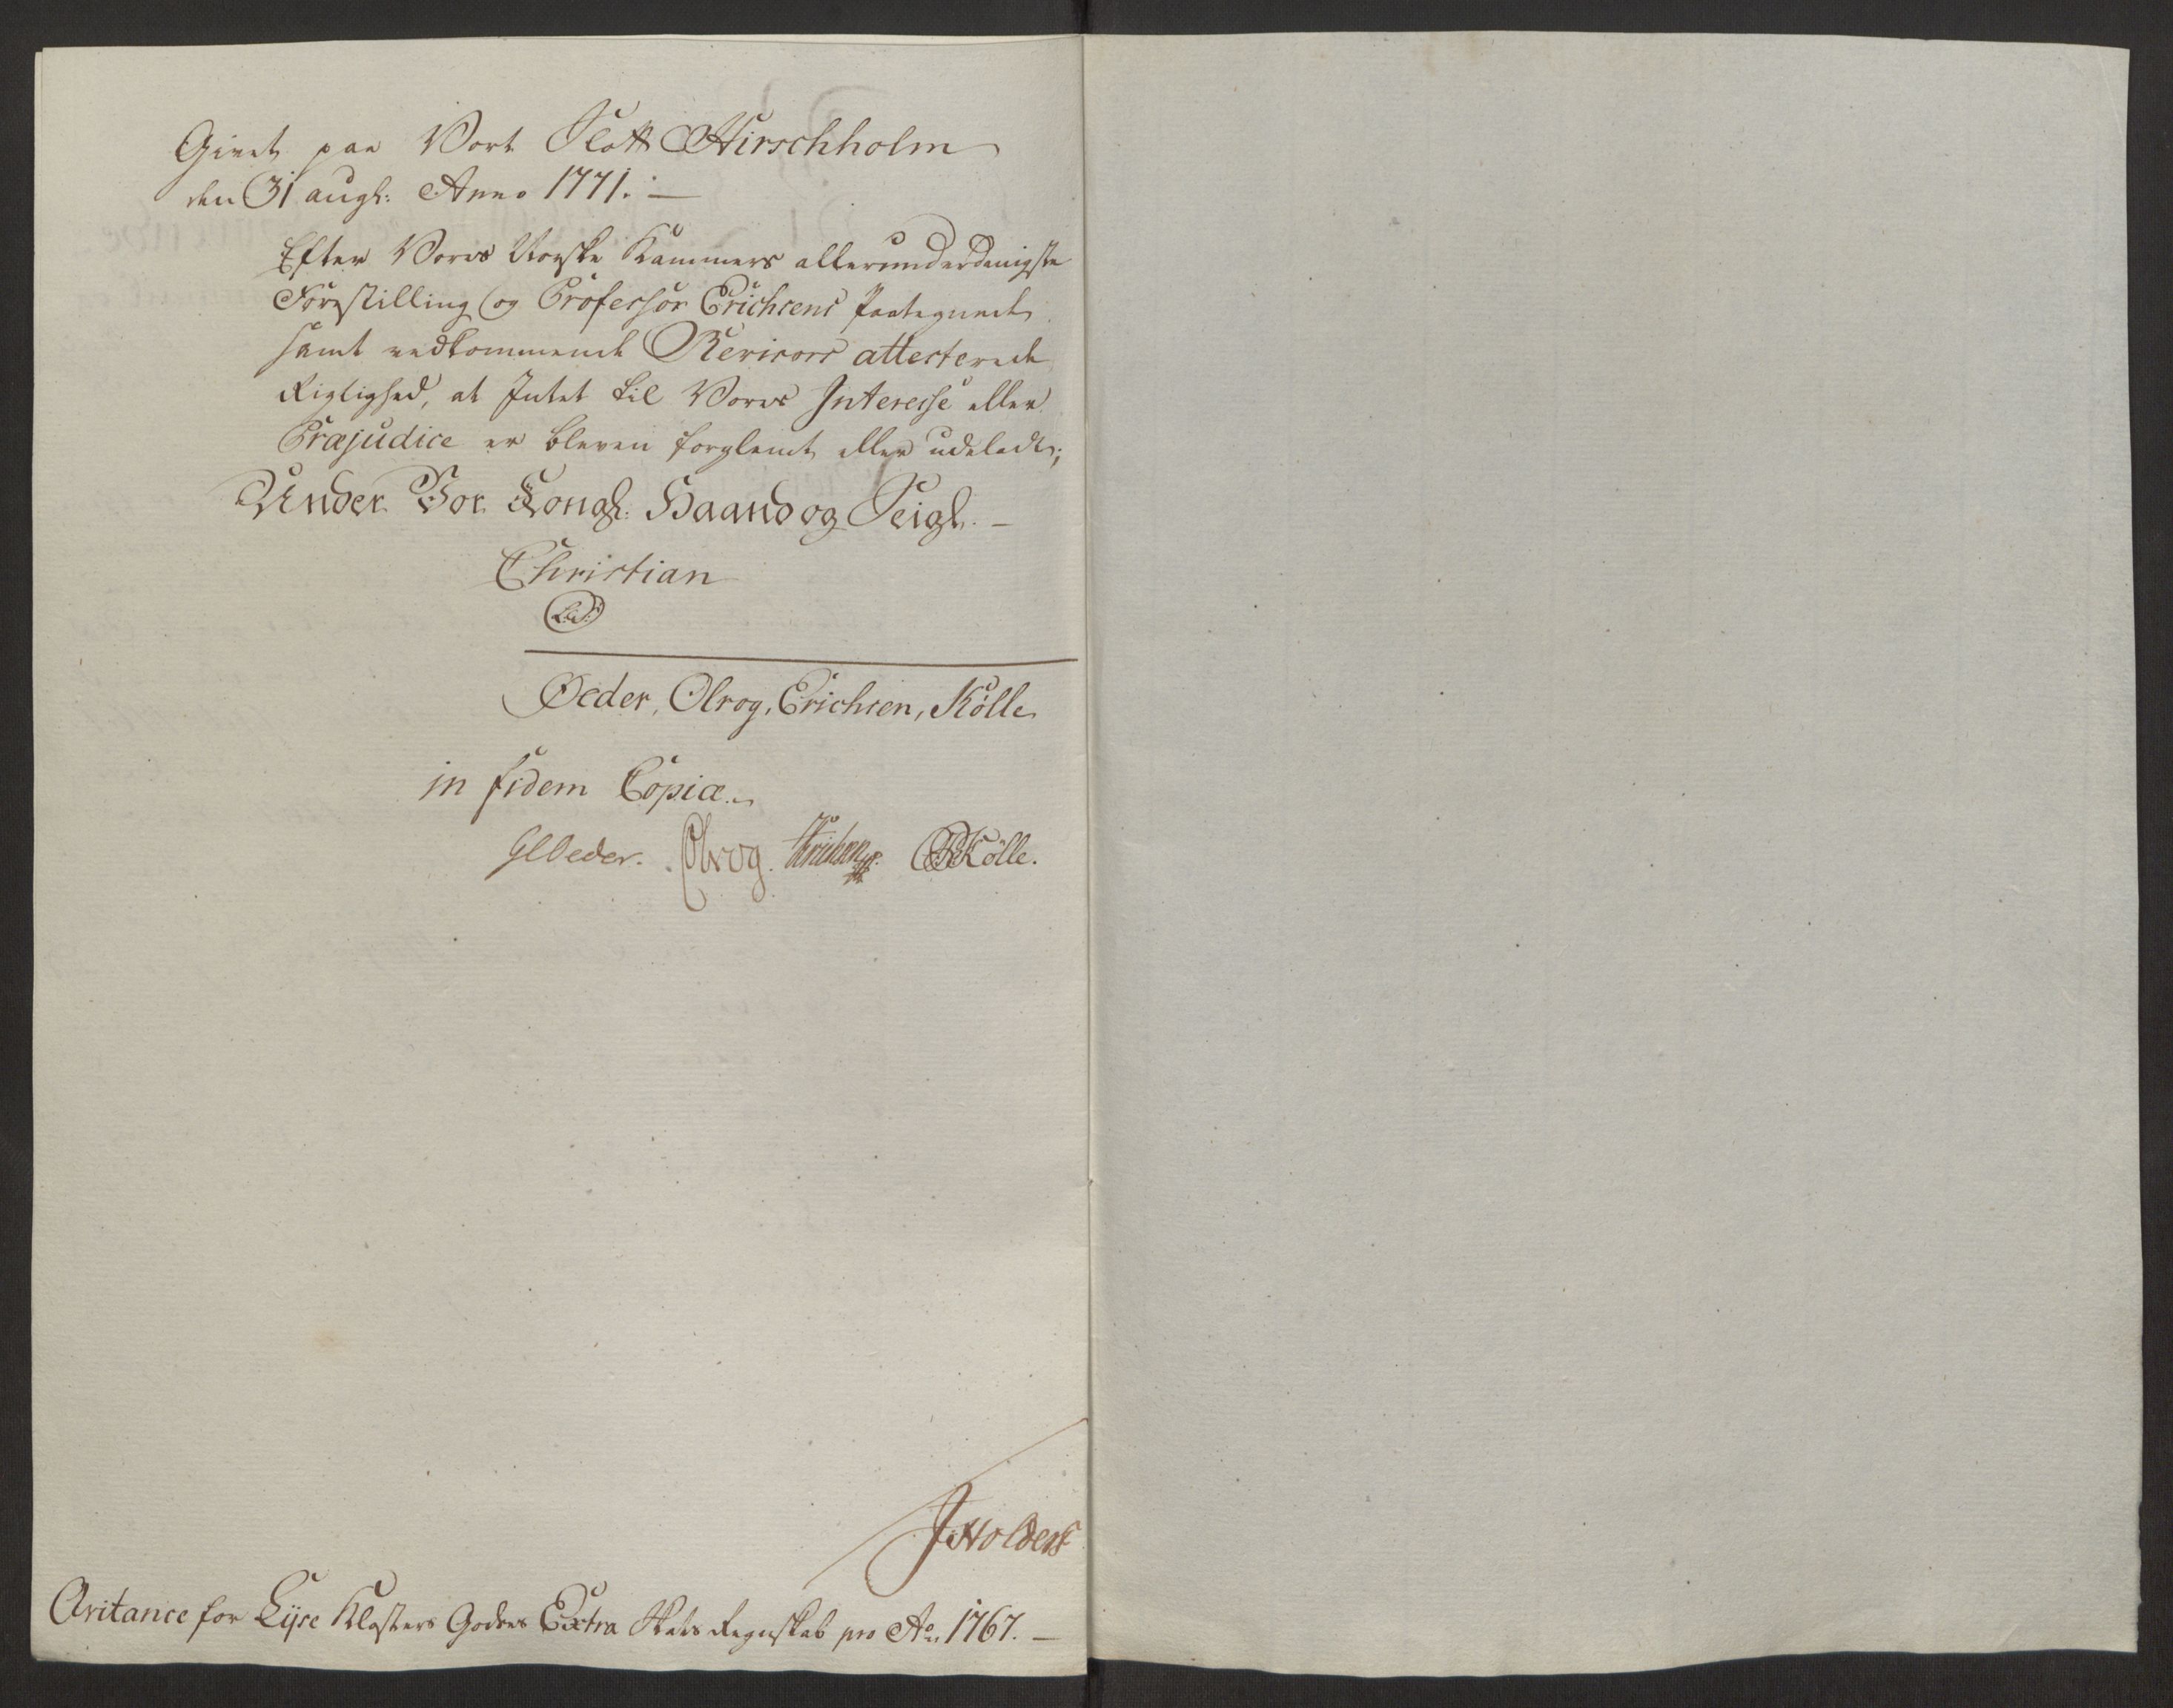 Givet paa Vort Slott Hirschholm
den 31 augt: Anno 1771. —
Efter Vores Norske Kammers allerunderdanigste
Forestilling og Professor Erichsens Paategnede
samt vedkommende Revisors attesterede
Rigtighed, at Intet til Vores Interesse eller
Præjudice er bleven forglemt eller udeladt;
Under Vor Kongl: Haand og Seigl. —
Christian
(L.S.)
Oeder, Olrog, Erichsen, Kölle
in fidem Copiæ.
GCOeder. Olrog. Erichsen Kölle.
Holders
Qvitance for Lyse Klosters Godses Extra Skats Regnskab pro Ao. 1767. —